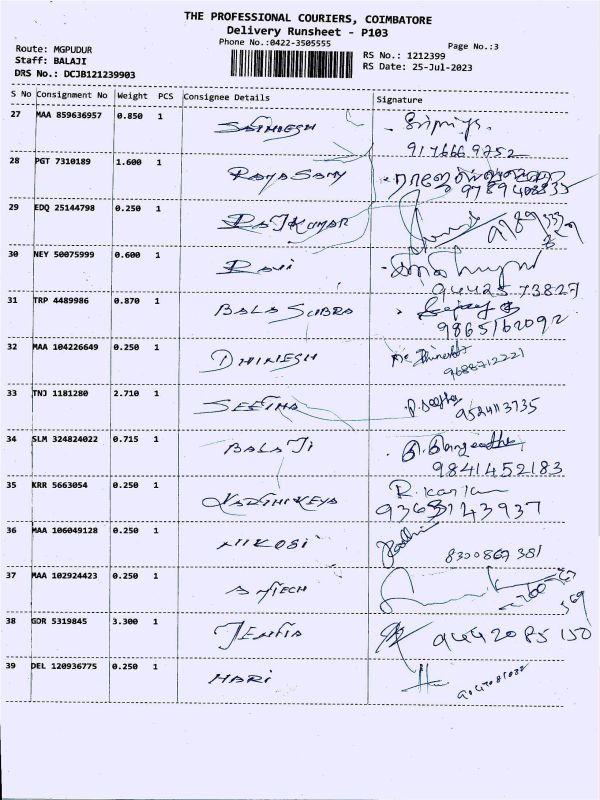 THE PROFESSIONAL COURIERS, COIMBATORE
Delivery Runsheet - P103
Phone No.:0422-3505555
Page No.:3
Route: MGPUDUR
RS No.: 1212399
Staff: BALAJI
RS Date: 25-Jul-2023
DRS No.: DCJB121239903
S No Consignment No Weight PCS Consignee Details Signature
27 MAA 859636957 0.850 1
9176669752
28 PGT 7310189 1.600 1 RAMASAMY
9789408835
29 EDQ 25144798 0.250 1 RAJKUMAR
30 NEY 50075999 0.600 1 RAVI
9442573827
31 TRP 4489986 0.870 1 BALA SUBRA
9865162092
32 MAA 104226649 0.250 1 DHINESH
9688712221
33 TNJ 1181280 2.710 1 SEETHA
9524113735
34 SLM 324824022 0.715 1 BALAJI
9841452183
35 KRR 5663054 0.250 1 KARTHIKEYA R.
36 MAA 106049128 0.250 1
8300867381
37 MAA 102924423 0.250 1
38 GDR 5319845 3.300 1 9442085150
39 DEL 120936775 0.250 1 HARI